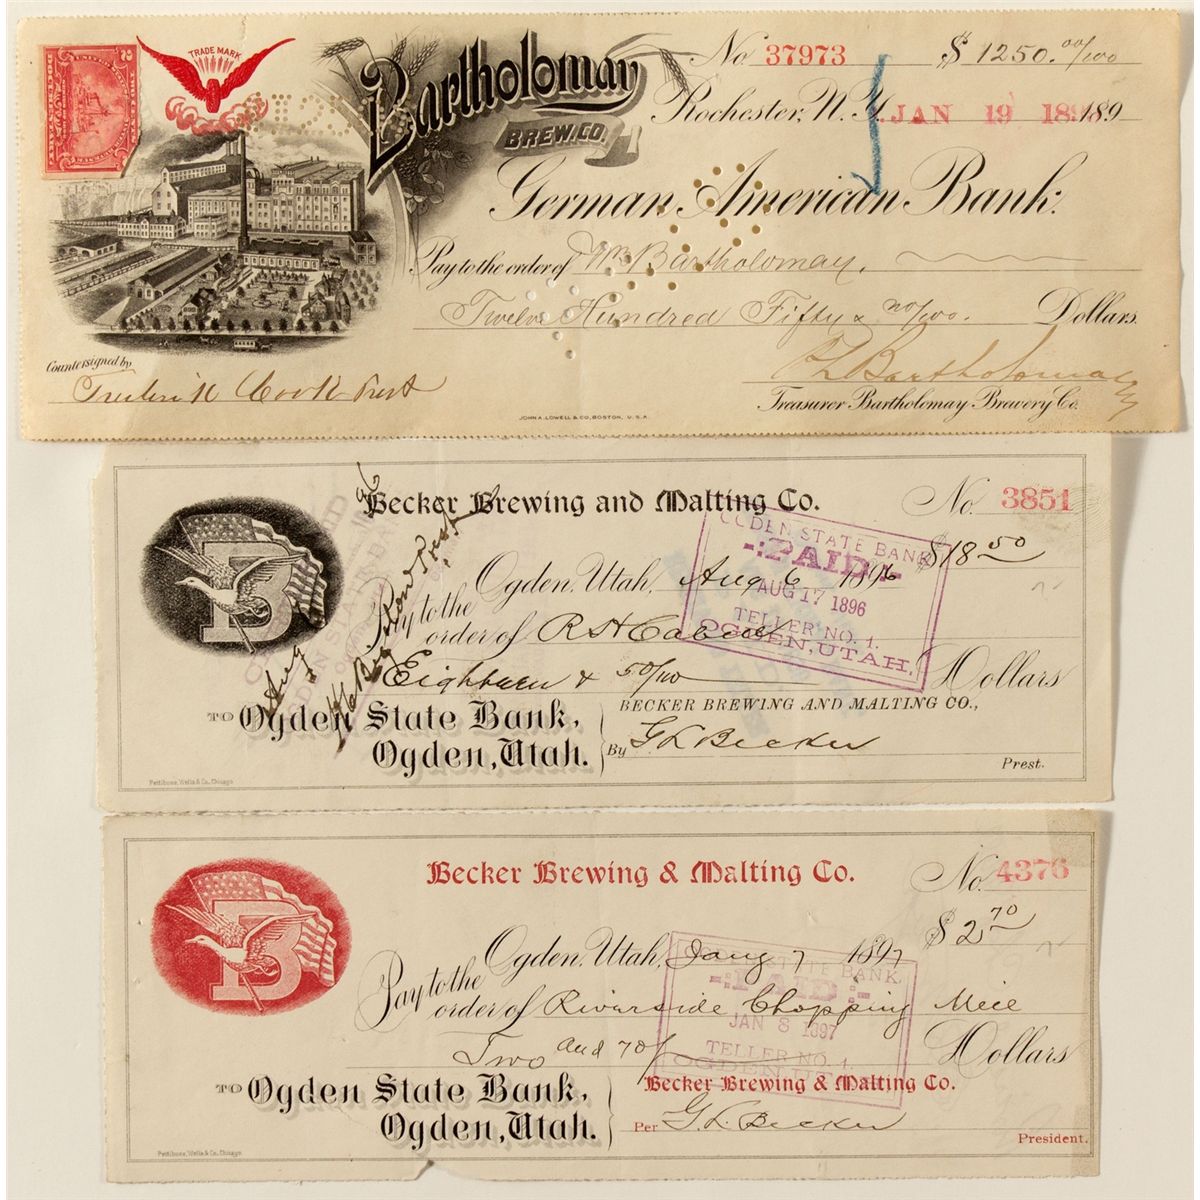 TRADE MARK
Bartholomay
BREW. CO.
No 37973 $ 1250.00/100
Rochester, N.Y. JAN 19 189
German American Bank.
Pay to the order of Wm Bartholomay.
Twelve Hundred Fifty & no/100. Dollars
Countersigned by
Frederick Cook Prest
Treasurer Bartholomay Brewery Co.
JOHN A. LOWELL & CO, BOSTON, U.S.A.
Becker Brewing and Malting Co.
No. 3851
$18 50
Ogden, Utah, Aug 6 1896
Pay to the
order of R H
Eighteen & 50/100 Dollars
TO Ogden State Bank,
Ogden, Utah.
BECKER BREWING AND MALTING CO.,
By G L Becker
Prest.
Pettibone, Wells & Co. Chicago
OGDEN STATE BANK
PAID
AUG 17 1896
TELLER NO. 1.
OGDEN, UTAH.
B
Becker Brewing & Malting Co.
No. 4376
$ 2 70
Ogden, Utah, Jany 7 1897
Pay to the
order of Riverside Chopping Mill
Two and 70/ Dollars
TO Ogden State Bank,
Ogden, Utah.
Becker Brewing & Malting Co.
Per G. L. Becker
President.
Pettibone, Wells & Co. Chicago
OGDEN STATE BANK
PAID
JAN 8 1897
TELLER NO. 1.
OGDEN, UTAH
B